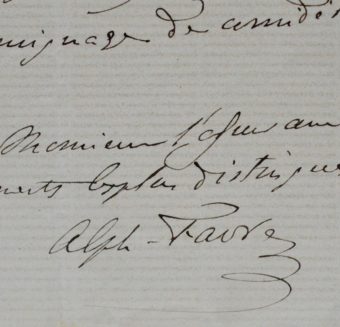 moignage de considé
Monsieur l'assurance
ments les plus distingués
Alph. Favre